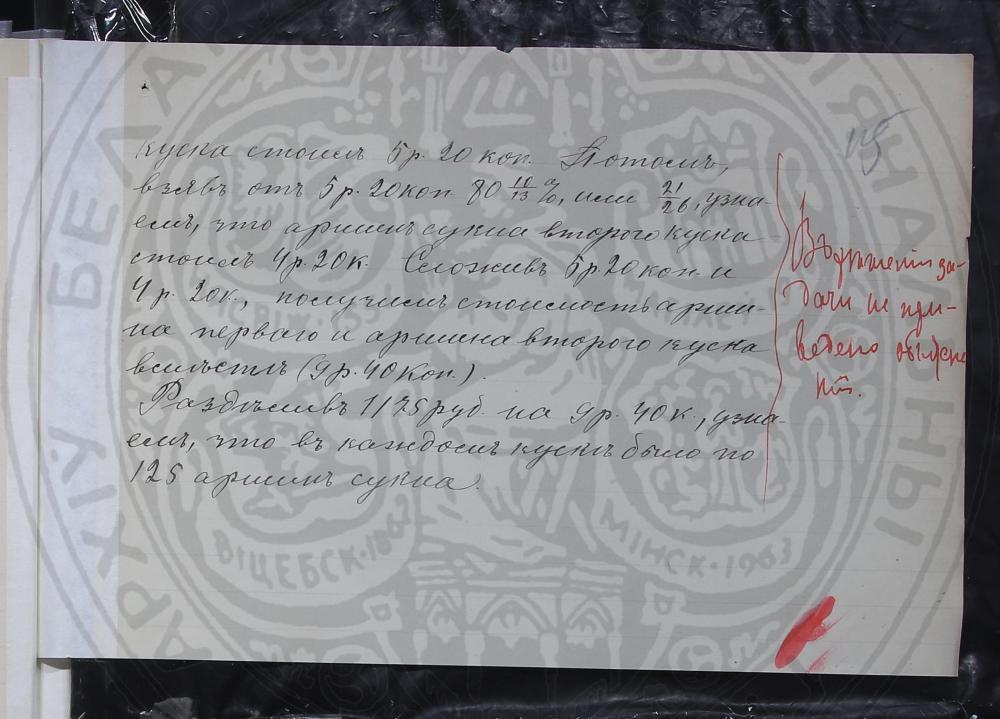 куска стоилъ 5 р. 20 коп. Потомъ,
взявъ отъ 5 р. 20 коп 80 10/13 %, или 21/26, узна-
емъ, что аршинъ сукна второго куска
стоилъ 4 р. 20 к. Сложивъ 5 р. 20 коп. и
4 р. 20 к., получимъ стоимость арши-
на перваго и аршина второго куска
вмѣстѣ (9 р. 40 коп.).
Раздѣливъ 1175 руб. на 9 р. 40 к., узна-
емъ, что въ каждомъ кускѣ было по
125 аршинъ сукна.
115
Въ рѣшеніи за-
дачи не при-
ведено объясне
нія.
ВІЦЕБСК·1862
МІНСК·1963